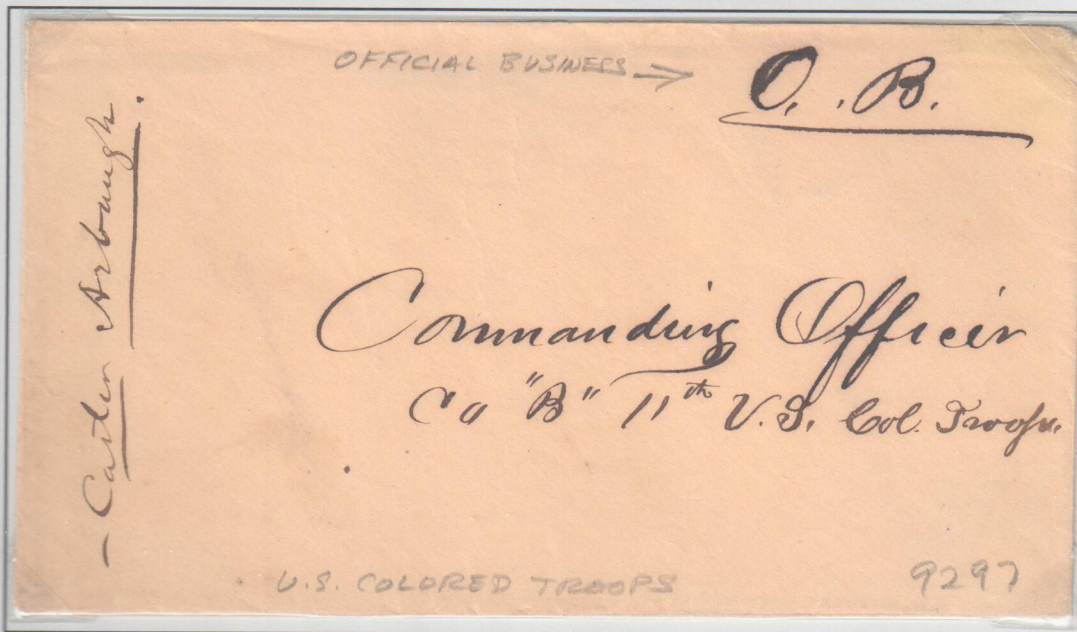 OFFICIAL BUSINESS →
O. . B.
Carter Arbaugh.
Commanding Officer
Co "B" 11th U.S. Col. Troops.
U.S. COLORED TROOPS
9297